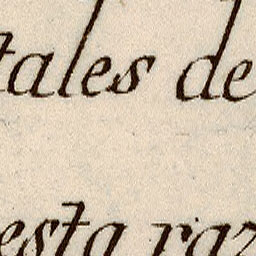 tales de
esta raz